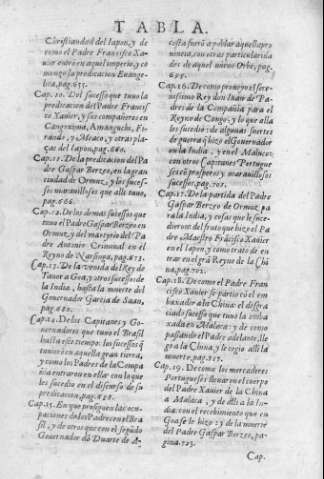 TABLA.
Christiandad del Iapon, y de
como el Padre Francisco Xa-
uier entrò en aquel imperio, y co
menço la predicacion Euange-
lica, pag.655.
Cap. 10. Del sucesso que tuuo la
predicacion del Padre Francis
co Xauier, y sus compañeros en
Cangoxima, Amanguchi, Fi-
rando, y Meaco, y otras pla-
ças del Iapon, pag.660.
Cap. 11. De la predicacion del Pa
dre Gaspar Berzeo, en la gran
ciudad de Ormuz, y los suces-
sos marauillosos que alli tuuo,
pag.666.
Cap. 12. De los demas sucessos que
tuuo el Padre Gaspar Berzeo en
Ormuz, y del martyrio del Pa
dre Antonio Criminal en el
Reyno de Narsinga, pag.673.
Cap. 13. De la venida del Rey de
Tanor a Goa, y otros sucessos de
la India, hasta la muerte del
Gouernador Garcia de Saa,
pag.
Cap. 14. De los Capitanes y Go-
uernadores que tuuo el Brasil
hasta este tiempo: los sucessos q
tuuieron en aquella gran tierra,
y como los Padres de la Compa
ñia entraron en ella: con lo que
les sucedio en el discurso de su
predicacion, pag.
Cap. 15. En que prosiguen las ocu-
paciones de los Padres en el Bra
sil, y de otros que con el segũdo
Gouernador dõ Duarte de A-
costa fuerõ a poblar aquella pro
uincia, con otras particularida
des de aquel nueuo Orbe, pag.
695.
Cap. 16. De como proueyo el sere-
nissimo Rey don Iuan de Pa-
dres de la Compañia para el
Reyno de Congo, y lo que alla
les sucedio: de algunas suertes
de guerra q̃ hizo el Gouernador
en la India, y en el Maluco:
con otros Capitanes Portugue
ses en prosperos y marauillosos
sucessos, pag.702.
Cap. 17. De la partida del Padre
Gaspar Berzeo de Ormuz pa
ra la India, y cosas que le suce-
dieron: del fruto que hizo el Pa
dre Maestro Frãcisco Xauier
en el Iapon, y como trato de en-
trar en el grã Reyno de la Chi
na, pag.
Cap. 18. De como el Padre Fran
cisco Xauier se partio cõ el em
baxador a la China: el desgra
ciado sucesso que tuuo la emba
xada en Malaca: y de como
passando el Padre adelante, lle
go a la China, y le cogio alli la
muerte, pag.717.
Cap. 19. De como los mercaderes
Portugueses lleuaron el cuerpo
del Padre Xauier de la China
a Malaca, y de alli a la In-
dia: con el recebimiento que en
Goa se le hizo: y de la muerte
del Padre Gaspar Berzeo, pa-
gina.723.
Cap.